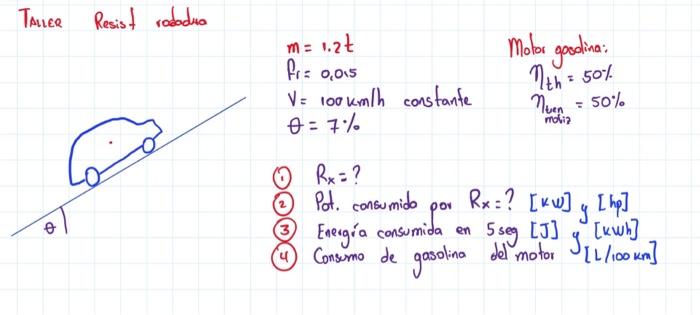 TALLER Resist rodadura
m = 1.2t
fr = 0,015
V = 100 km/h constante
θ = 7%
Motor gasolina:
ηth = 50%
ηtren motriz = 50%
θ
1 Rx = ?
2 Pot. consumido por Rx = ? [kW] y [hp]
3 Energía consumida en 5 seg [J] y [kWh]
4 Consumo de gasolina del motor [L/100 km]